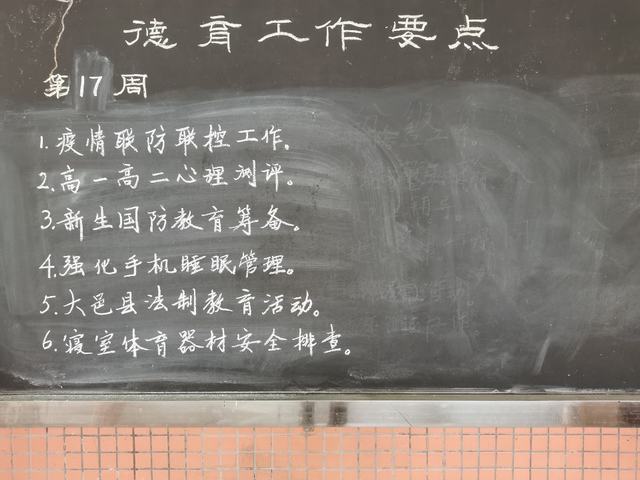 德育工作要点
第17周
1.疫情联防联控工作.
2.高一高二心理测评。
3.新生国防教育筹备。
4.强化手机睡眠管理。
5.大邑县法制教育活动。
6.寝室体育器材安全排查。